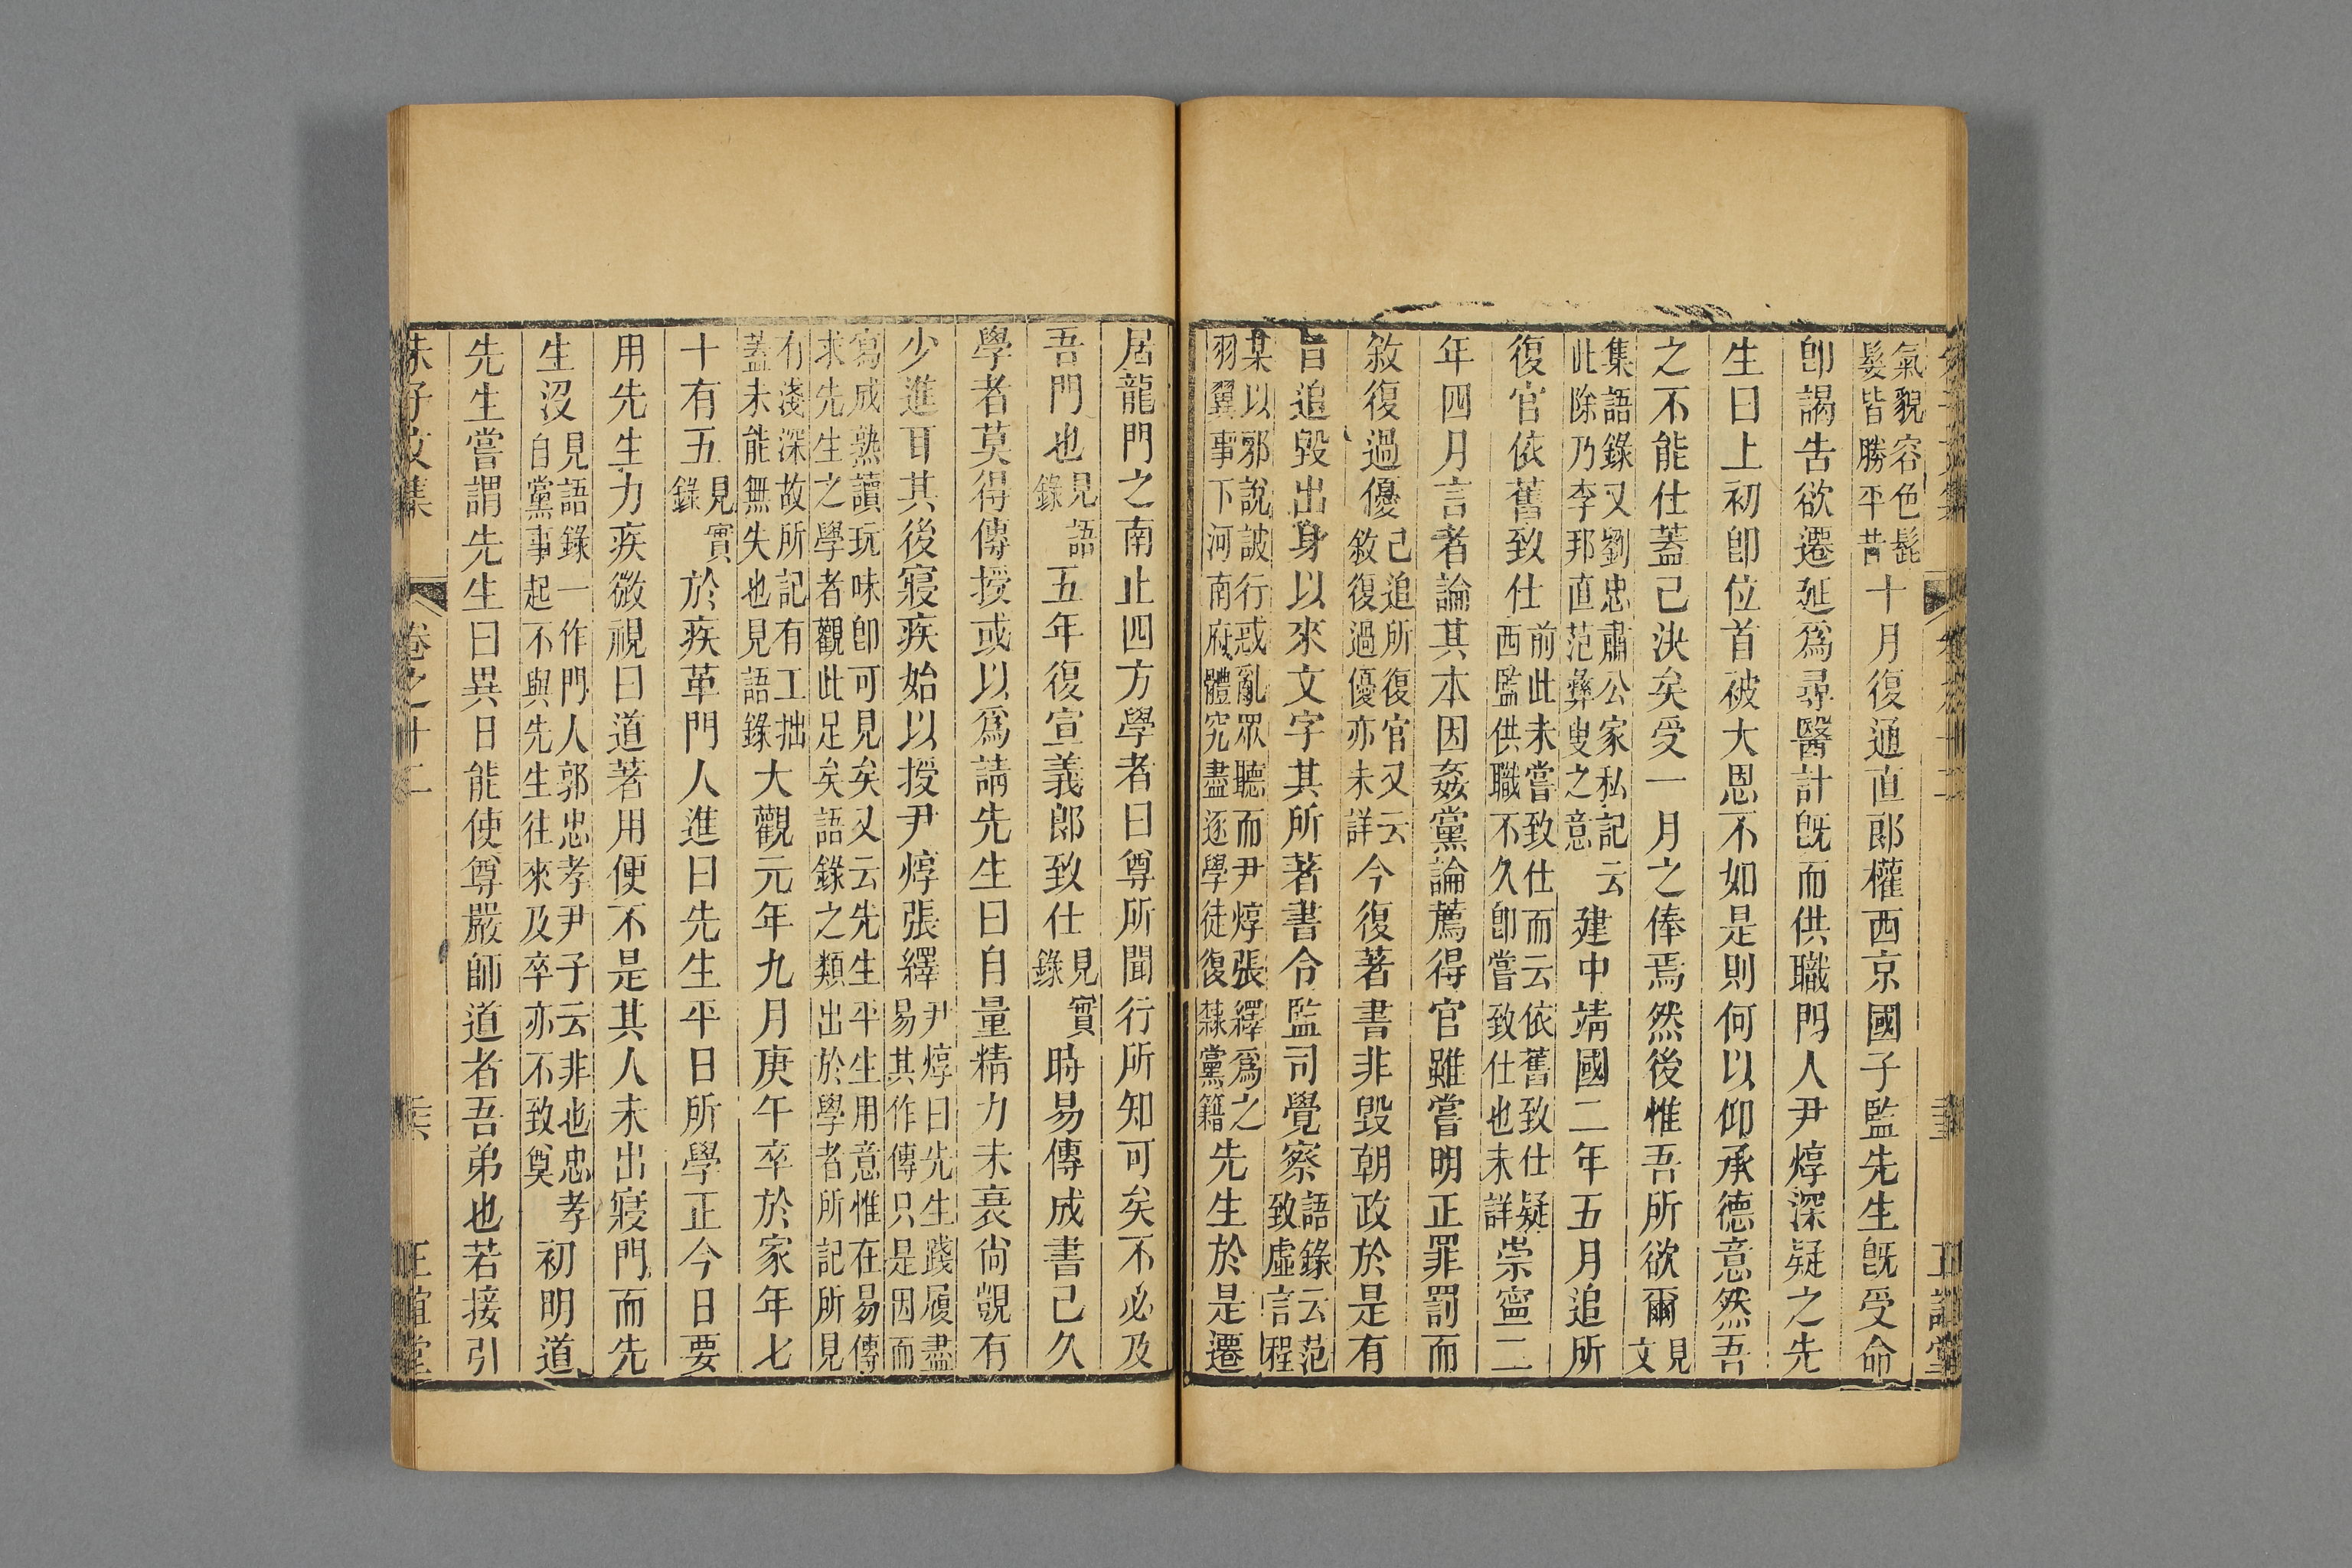 氣貌容色髭
髮皆勝平昔十月復通直郎權西京國子監先生既受命
卽謁告欲遷延爲尋醫計既而供職門人尹焞深疑之先
生曰上初卽位首被大恩不如是則何以仰承德意然吾
之不能仕蓋已決矣受一月之俸焉然後惟吾所欲爾見文
集語錄又劉忠肅公家私記云
此除乃李邦直范彝叟之意建中靖國二年五月追所
復官依舊致仕前此未嘗致仕而云依舊致仕疑
西監供職不久卽嘗致仕也未詳崇寧二
年四月言者論其本因姦黨論薦得官雖嘗明正罪罰而
敘復過優已追所復官又云
敘復過優亦未詳今復著書非毀朝政於是有
旨追毀出身以來文字其所著書令監司覺察語錄云范
致虛言程
某以邪說詖行惑亂眾聽而尹焞張繹爲之
羽翼事下河南府體究盡逐學徒復隸黨籍先生於是遷
居龍門之南止四方學者曰尊所聞行所知可矣不必及
吾門也見語
錄五年復宣義郎致仕見實
錄時易傳成書已久
學者莫得傳授或以爲請先生曰自量精力未衰尚覬有
少進耳其後寢疾始以授尹焞張繹尹焞曰先生踐履盡
易其作傳只是因而
寫成熟讀玩味卽可見矣又云先生平生用意惟在易傳
求先生之學者觀此足矣語錄之類出於學者所記所見
有淺深故所記有工拙
蓋未能無失也見語錄大觀元年九月庚午卒於家年七
十有五見實
錄於疾革門人進曰先生平日所學正今日要
用先生力疾微視曰道著用便不是其人未出寢門而先
生沒見語錄一作門人郭忠孝尹子云非也忠孝
自黨事起不與先生往來及卒亦不致奠初明道
先生嘗謂先生曰異日能使尊嚴師道者吾弟也若接引
朱子文集
卷之十二
正誼堂